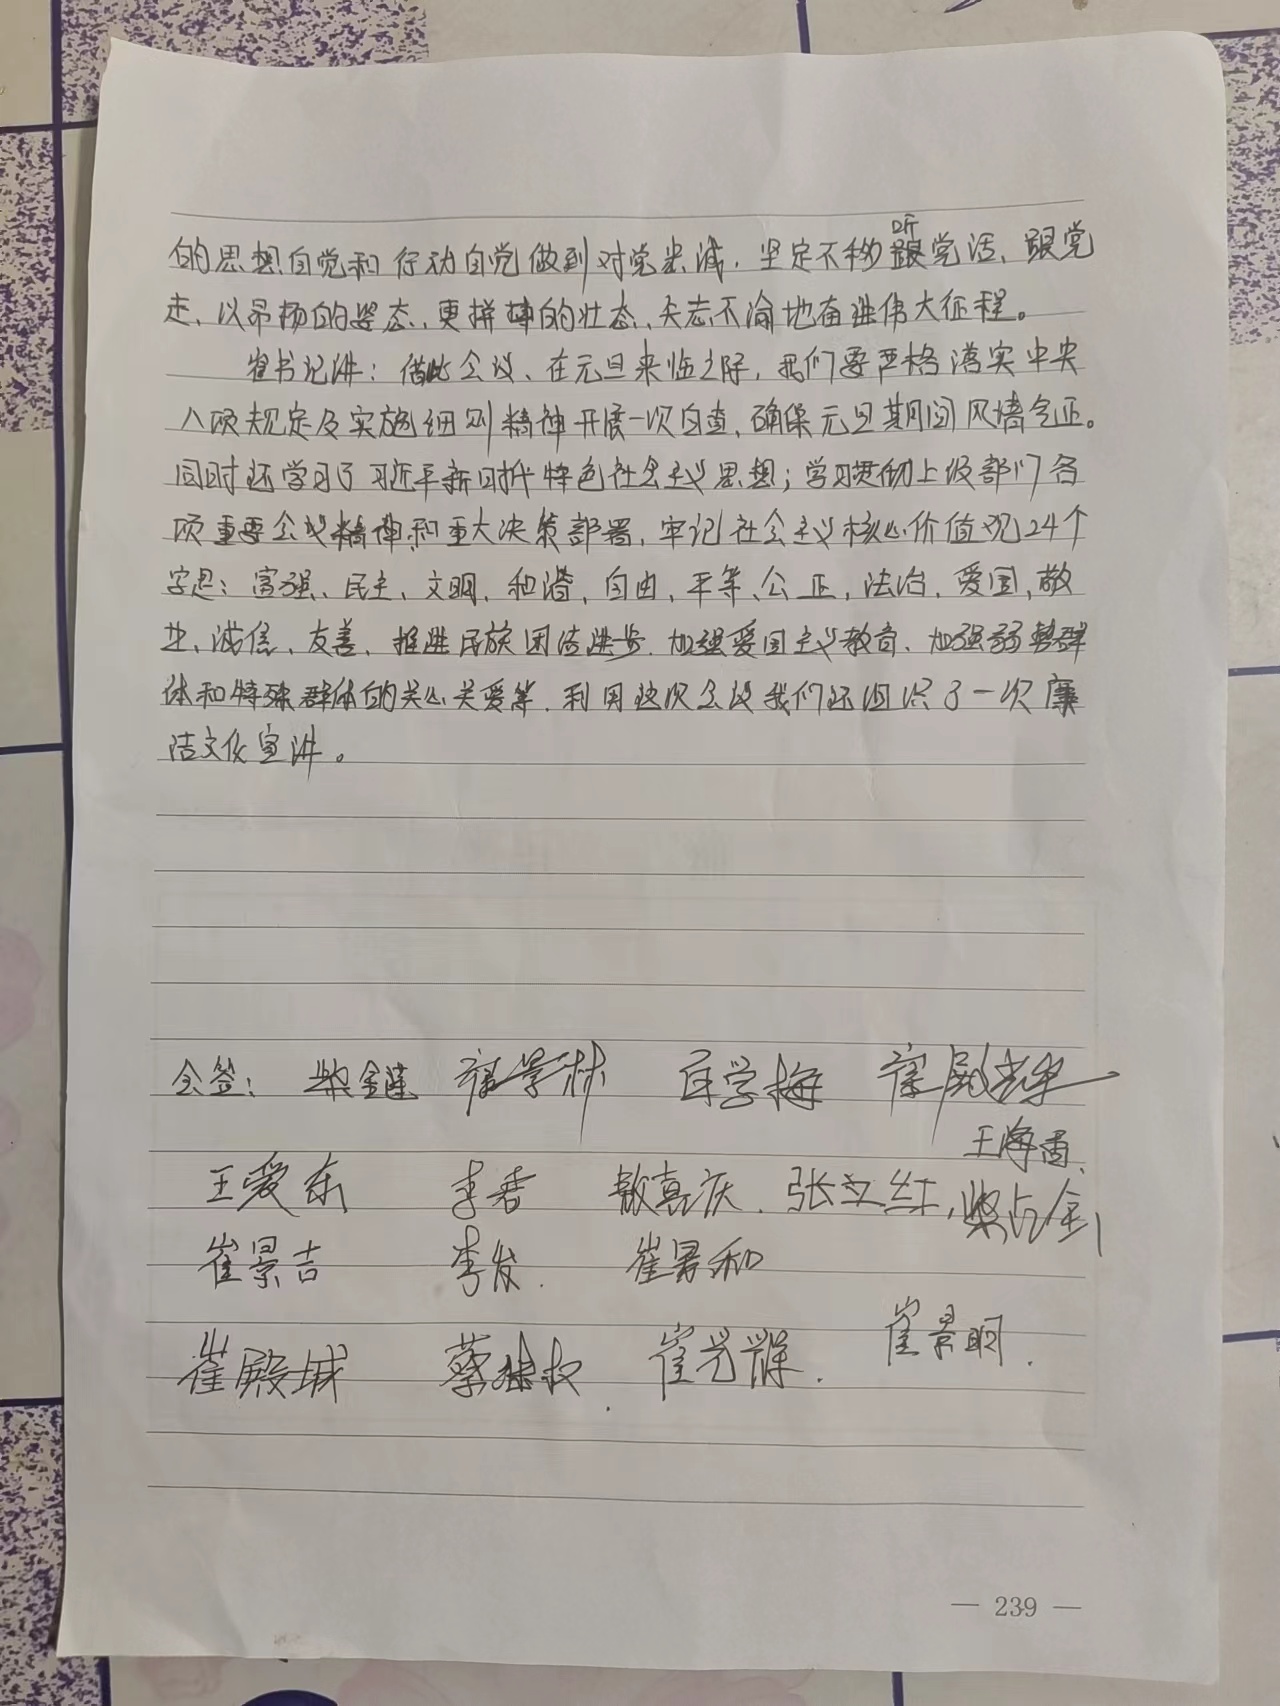 的思想自觉和行动自觉做到对党忠诚，坚定不移听党话、跟党
走，以昂扬的姿态、更拼搏的壮态、矢志不渝地奋进伟大征程。
崔书记讲：借此会议、在元旦来临之际，我们要严格落实中央
八项规定及实施细则精神开展一次自查，确保元旦期间风清气正。
同时还学习了习近平新时代特色社会主义思想；学习贯彻上级部门各
项重要会议精神和重大决策部署，牢记社会主义核心价值观24个
字是：富强、民主、文明、和谐，自由、平等、公正，法治，爱国，敬
业、诚信、友善、推进民族团结进步．加强爱国主义教育、加强弱势群
体和特殊群体的关心关爱等．利用这次会议我们还组织了一次廉
洁文化宣讲。
会签： 崔景林 学梅 崔殿
王海香、
王爱东 李香 敖嘉庆．张立红，柴占金
崔景吉 李发． 崔景和
崔景明．
崔殿城 蔡 崔光辉．
— 239 —